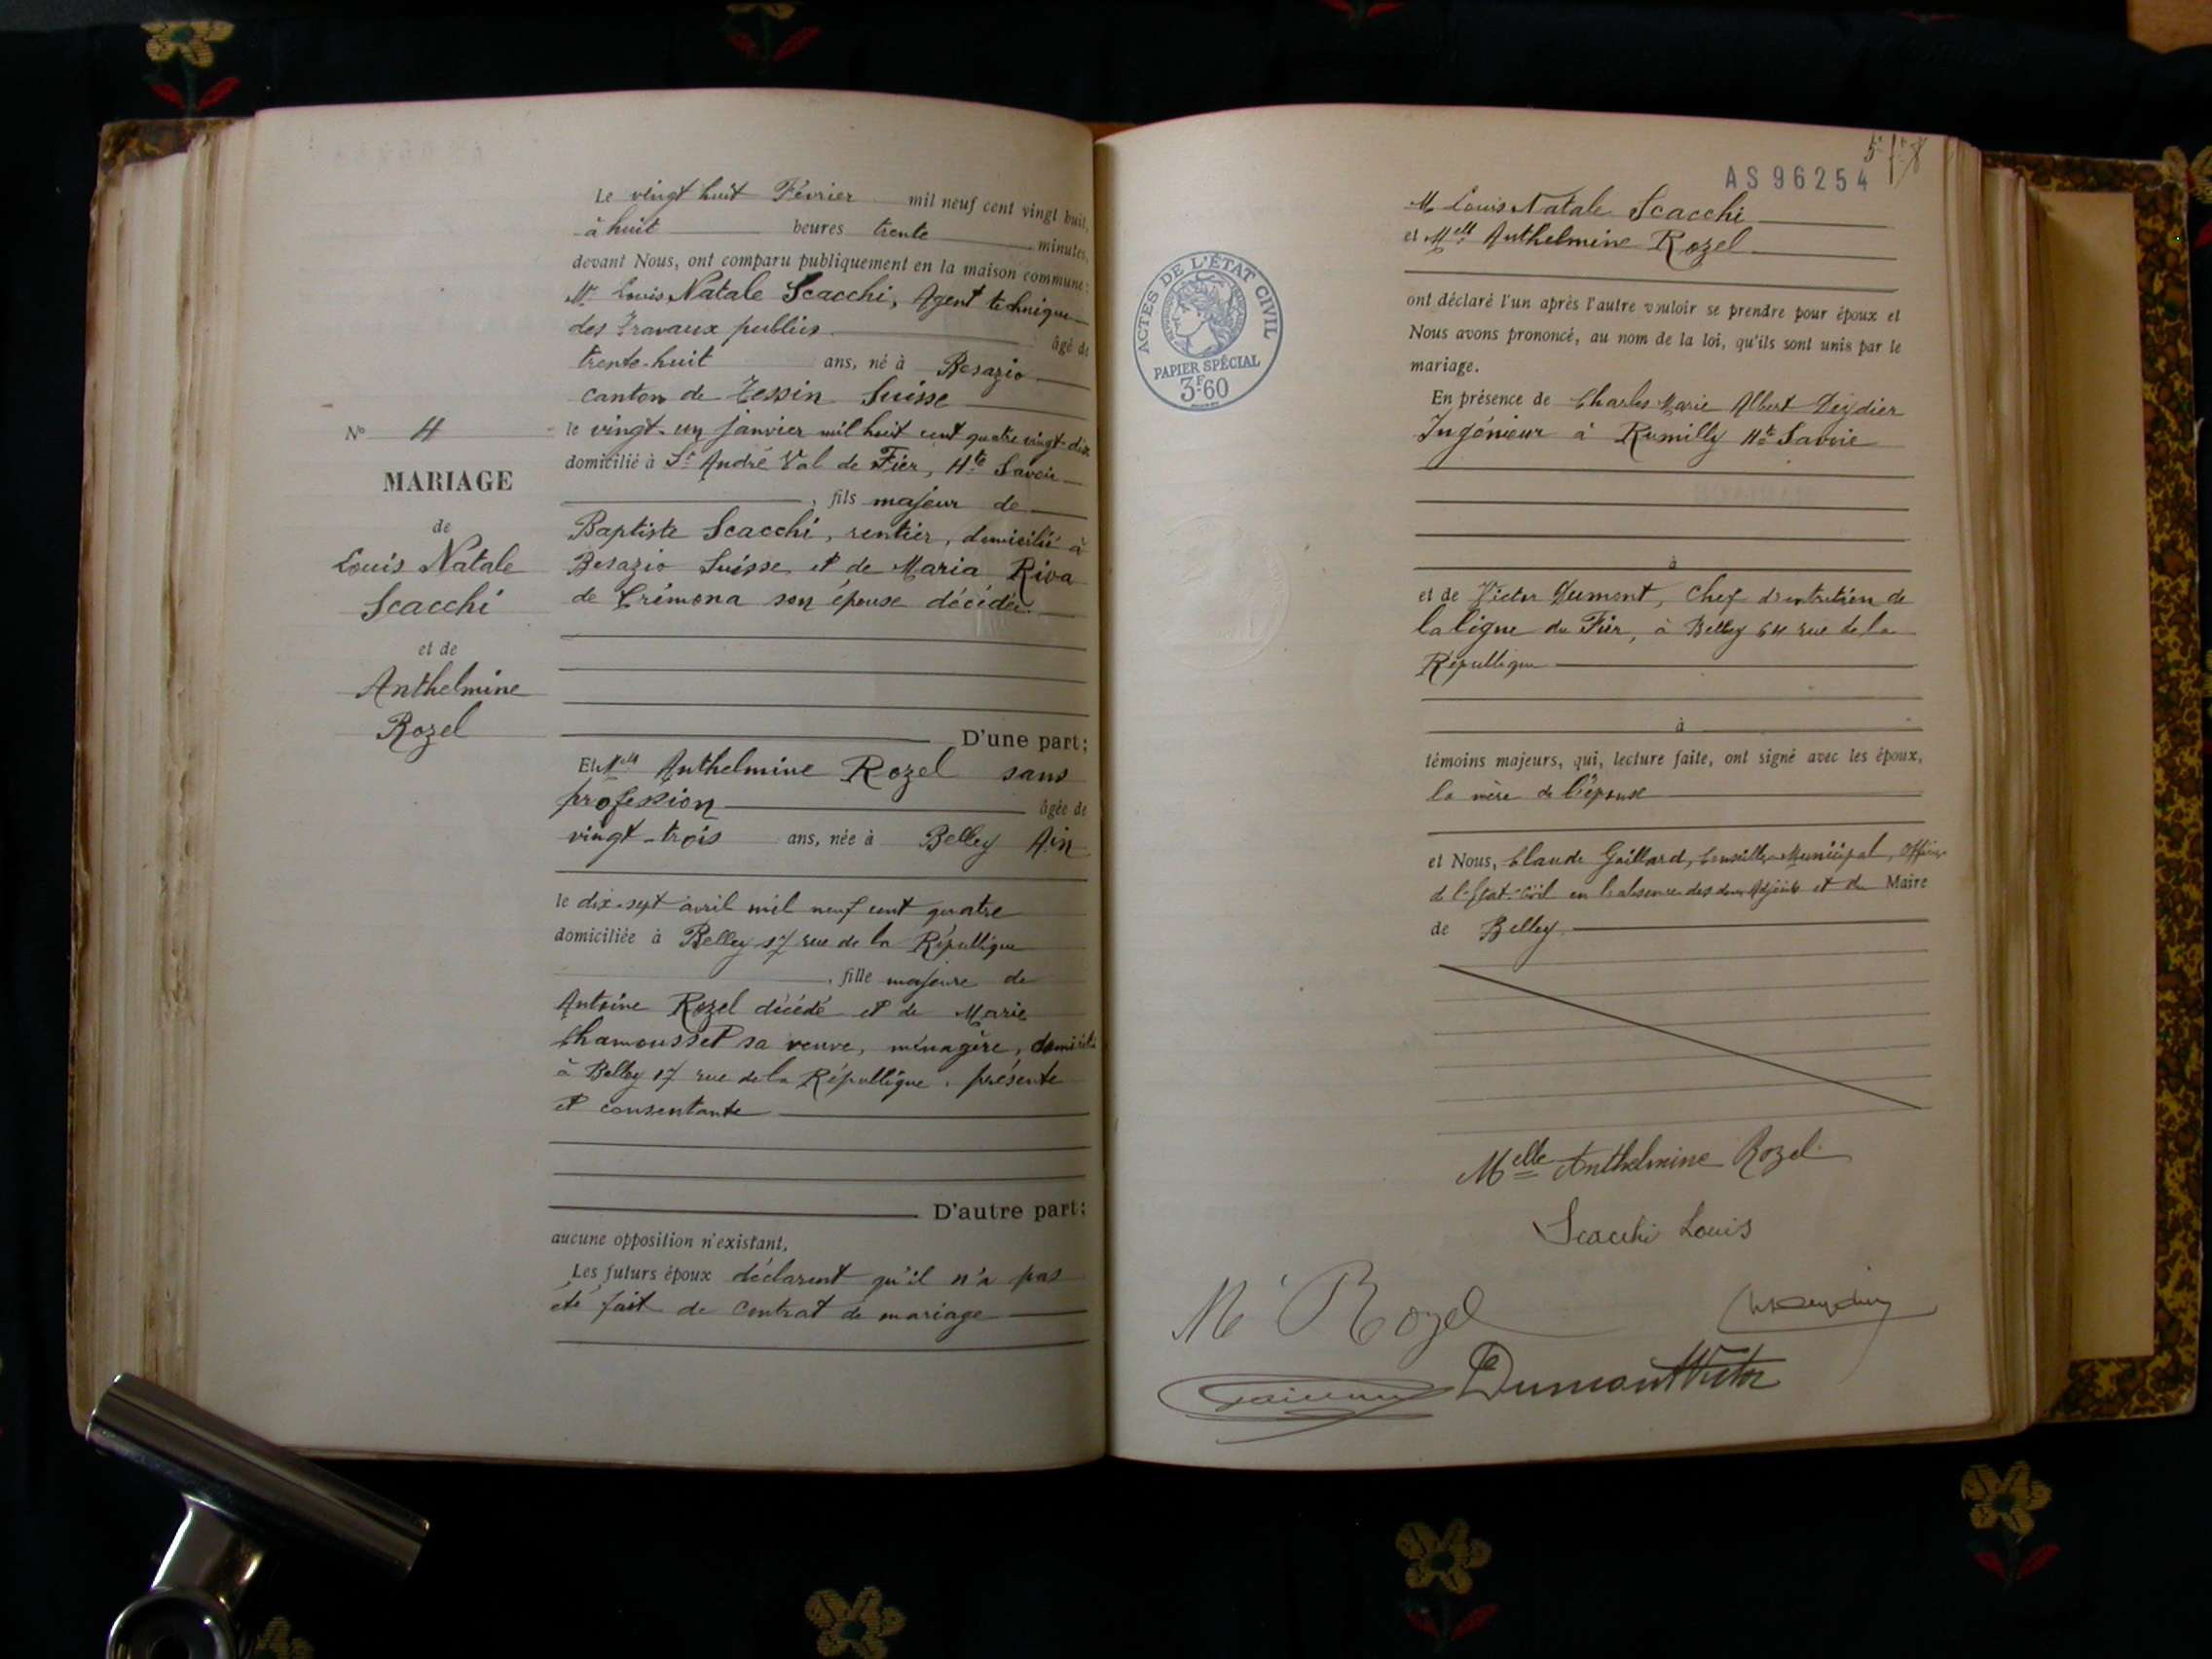 Le vingt huit Février mil neuf cent vingt huit,
à huit heures trente minutes,
devant Nous, ont comparu publiquement en la maison commune:
Mr Louis Natale Scacchi, Agent technique
des Travaux publics âgé de
trente-huit ans, né à Besazio
canton de Tessin Suisse
le vingt-un janvier mil huit cent quatre vingt-dix
domicilié à St André Val de Fier, Hte Savoie
, fils majeur de
Baptiste Scacchi, rentier, domicilié à
Besazio Suisse et de Maria Riva
de Crémona son épouse décédée.
D'une part;
Et Melle Anthelmine Rozel sans
profession âgée de
vingt-trois ans, née à Belley Ain
le dix-sept avril mil neuf cent quatre
domiciliée à Belley 17 rue de la République
, fille majeure de
Antoine Rozel décédé et de Marie
Chamousset sa veuve, ménagère, domicilié
à Belley 17 rue de la République, présente
et consentante
D'autre part;
aucune opposition n'existant,
Les futurs époux déclarent qu'il n'a pas
été fait de contrat de mariage
No 4
MARIAGE
de
Louis Natale
Scacchi
et de
Anthelmine
Rozel
AS 96254
ACTES DE L'ÉTAT CIVIL
PAPIER SPÉCIAL
3F60
M Louis Natale Scacchi
et Melle Anthelmine Rozel
ont déclaré l'un après l'autre vouloir se prendre pour époux et
Nous avons prononcé, au nom de la loi, qu'ils sont unis par le
mariage.
En présence de Charles Marie Albert Deydier
Ingénieur à Rumilly Hte Savoie
à
et de Victor Dumont, Chef d'entretien de
la ligne du Fier, à Belley 64 rue de la
République
à
témoins majeurs, qui, lecture faite, ont signé avec les époux,
la mère de l'épouse
et Nous, Claude Gaillard, Conseiller Municipal, Officier
de l'Etat-Civil en l'absence des deux Adjoints et du Maire
de Belley.
Melle Anthelmine Rozel
Scacchi Louis
M Rozel
Dumont Victor